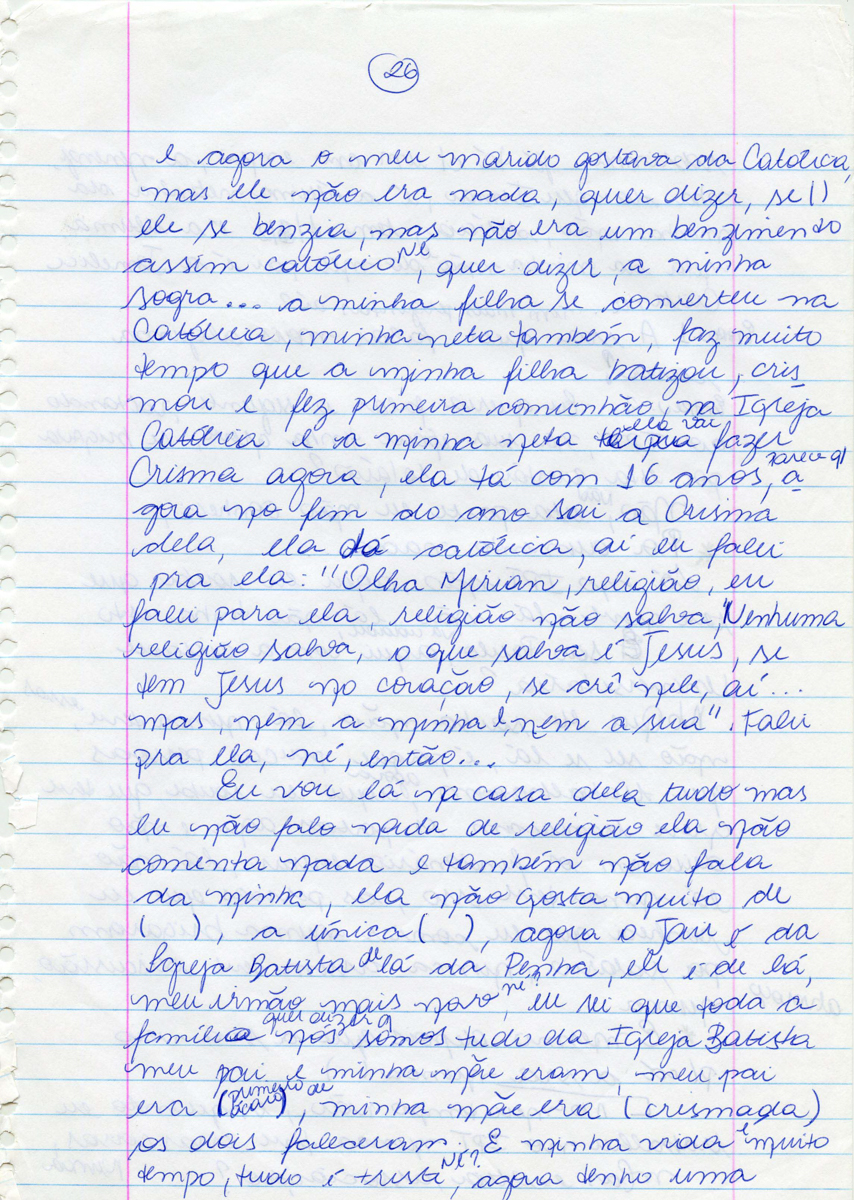 26
e agora o meu marido gostava da Católica,
mas ele não era nada, quer dizer, se ( )
ele se benzia, mas não era um benzimento
assim católico né, quer dizer, a minha
sogra... a minha filha se converteu na
Católica, minha neta também, faz muito
tempo que a minha filha batizou, cris
mou e fez primeira comunhão na Igreja
Católica e a minha neta ela vai fazer
Crisma agora, ela tá com 16 anos, parece q/ a
gora no fim do ano sai a Crisma
dela, ela tá católica, aí eu falei
pra ela: "Olha Mirian, religião, eu
falei para ela, religião não salva, Nenhuma
religião salva, o que salva é Jesus, se
tem Jesus no coração, se crê nele, aí...
mas, nem a minha e nem a sua". Falei
pra ela, né, então...
Eu vou lá na casa dela tudo mas
eu não falo nada de religião ela não
comenta nada e também não fala
da minha, ela não gosta muito de
( ), a única ( ), agora o Jair é da
Igreja Batista de lá da Penha, ele é de lá,
meu irmão mais novo, né? eu sei que toda a
família quer dizer q/ nós somos tudo da Igreja Batista
meu pai e minha mãe eram, meu pai
era (primeiro de ácaro), minha mãe era (crismada)
os dois faleceram. E minha vida é muito
tempo, tudo é triste Né?, agora tenho uma